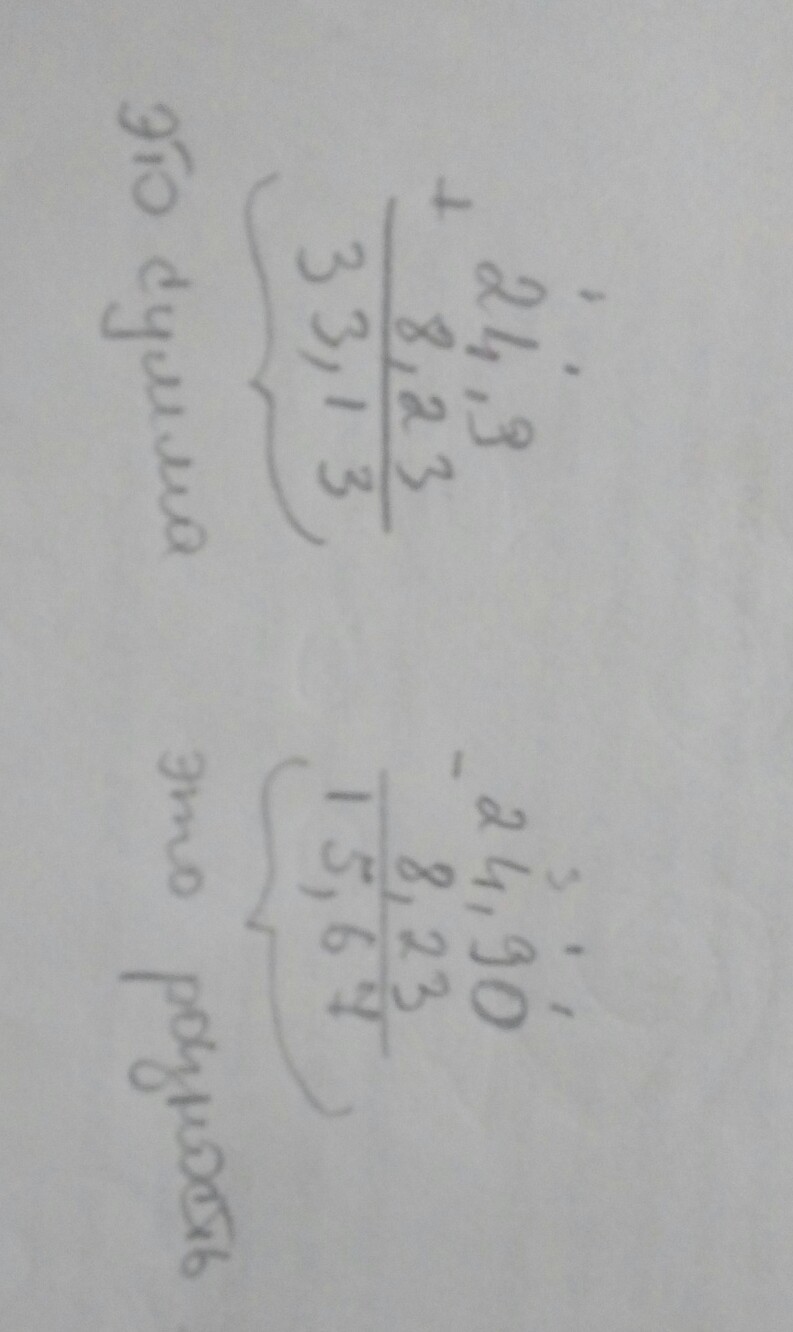 1 1
24,9
+ 8,23
33,13
это сумма
3 . .
24,90
- 8,23
15,67
это разность